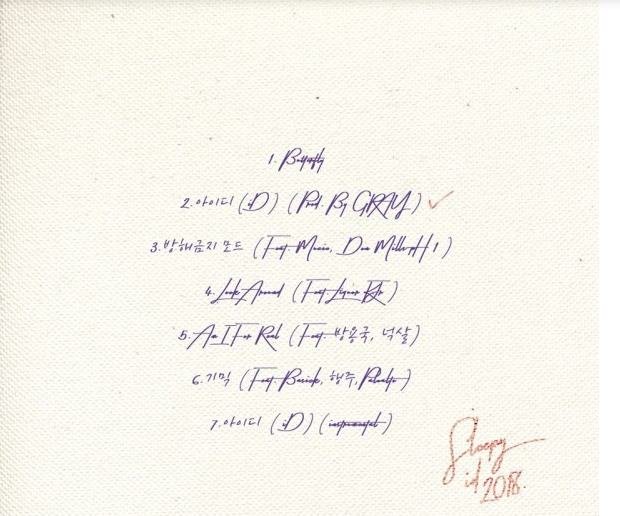 1. Butterfly
2. 아이디 (iD) (Prod. By GRAY)
3. 방해금지 모드 (Feat. Moon, Don Mills, H1)
4. Look Around (Feat. Liquor)
5. Am I For Real (Feat. 방용국, 넉살)
6. 기믹 (Feat. Basick, 행주, Paloalto)
7. 아이디 (iD) (instrumental)
Sleepy
id
2018.